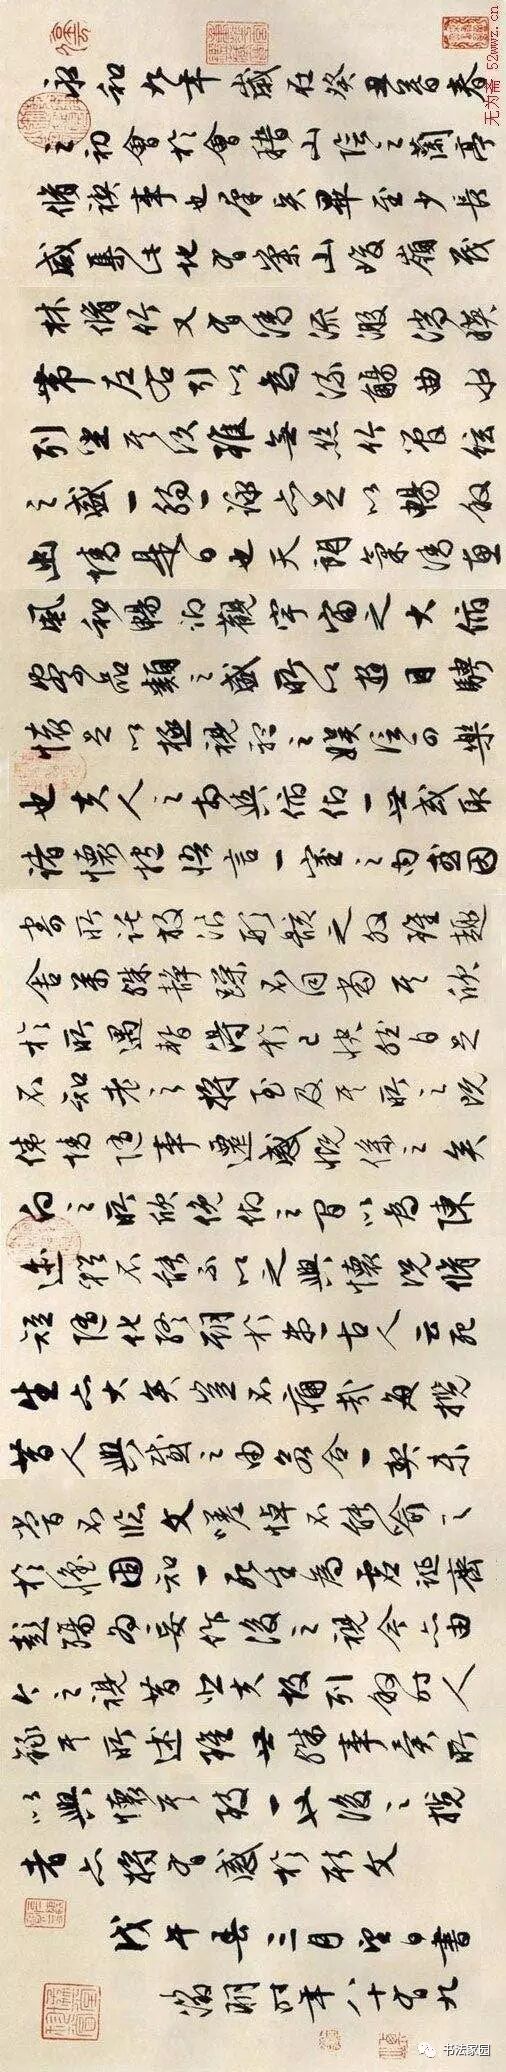 永和九年歲在癸丑暮春
之初會於會稽山陰之蘭亭
脩禊事也羣賢畢至少長
咸集此地有崇山峻嶺茂
林脩竹又有清流激湍映
帶左右引以為流觴曲水
列坐其次雖無絲竹管絃
之盛一觴一詠亦足以暢敘
幽情是日也天朗氣清惠
風和暢仰觀宇宙之大俯
察品類之盛所以遊目騁
懷足以極視聽之娛信可樂
也夫人之相與俯仰一世或取
諸懷抱悟言一室之內或因
寄所託放浪形骸之外雖趣
舍萬殊靜躁不同當其欣
於所遇暫得於己快然自足
不知老之將至及其所之既
倦情隨事遷感慨係之矣
向之所欣俛仰之間以為陳
迹猶不能不以之興懷況脩
短隨化終期於盡古人云死
生亦大矣豈不痛哉每攬
昔人興感之由若合一契未
嘗不臨文嗟悼不能喻之
於懷固知一死生為虛誕齊
彭殤為妄作後之視今亦由
今之視昔悲夫故列敘時人
錄其所述雖世殊事異所
以興懷其致一也後之攬
者亦將有感於斯文
戊午春三月望日書
徵明時年八十有九
无为斋 52wwz.cn
书法家园